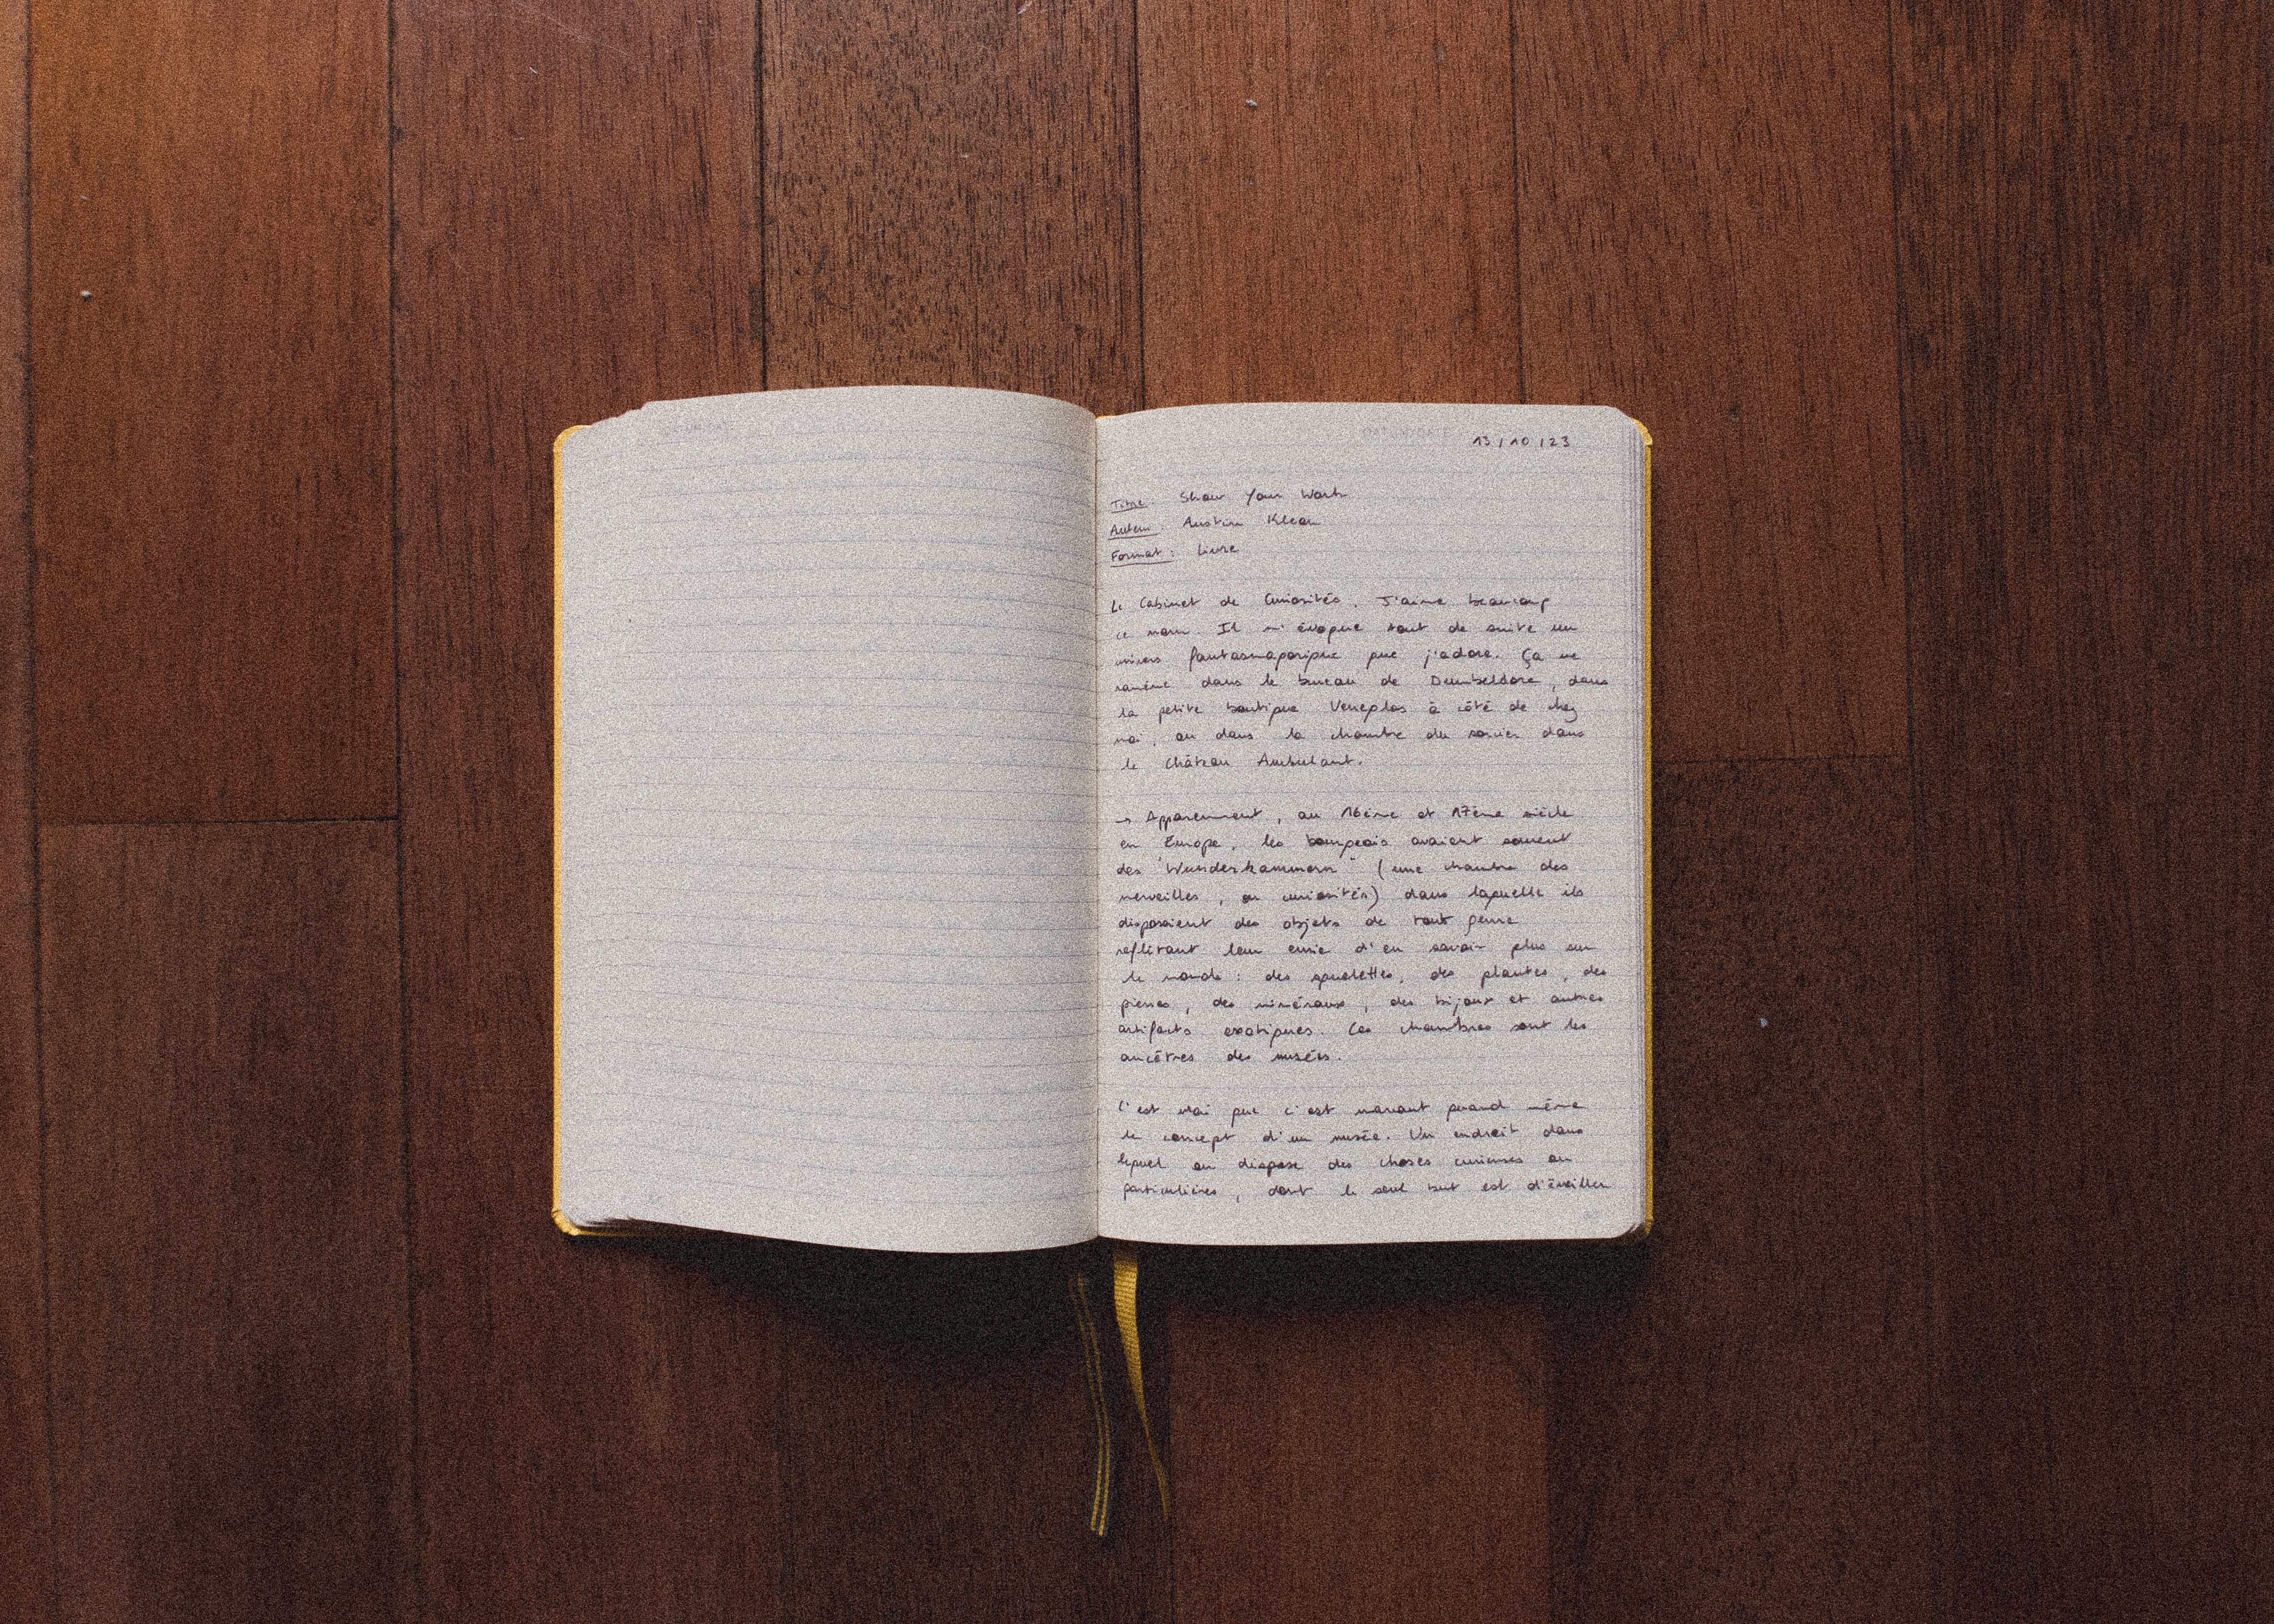 DATUM/DATE
13/10/23
Titre : Show Your Work
Auteur : Austin Kleon
Format : Livre
Le Cabinet de Curiosités. J'aime beaucoup
ce nom. Il m'évoque tout de suite un
univers fantasmagorique que j'adore. Ça me
ramène dans le bureau de Dumbeldore, dans
la petite boutique à côté de chez
moi, ou dans la chambre du sorcier dans
le Château Ambulant.
→ Apparemment, au 16ème et 17ème siècle
en Europe, les bourgeois avaient souvent
des "Wunderkammern" (une chambre des
merveilles, ou curiosités) dans laquelle ils
disposaient des objets de tout genre
reflétant leur envie d'en savoir plus sur
le monde : des squelettes, des plantes, des
pierres, des minéraux, des bijoux et autres
artifacts exotiques. Ces chambres sont les
ancêtres des musées.
C'est vrai que c'est marrant quand même
le concept d'un musée. Un endroit dans
lequel on dispose des choses curieuses ou
particulières, dont le seul but est d'éveiller